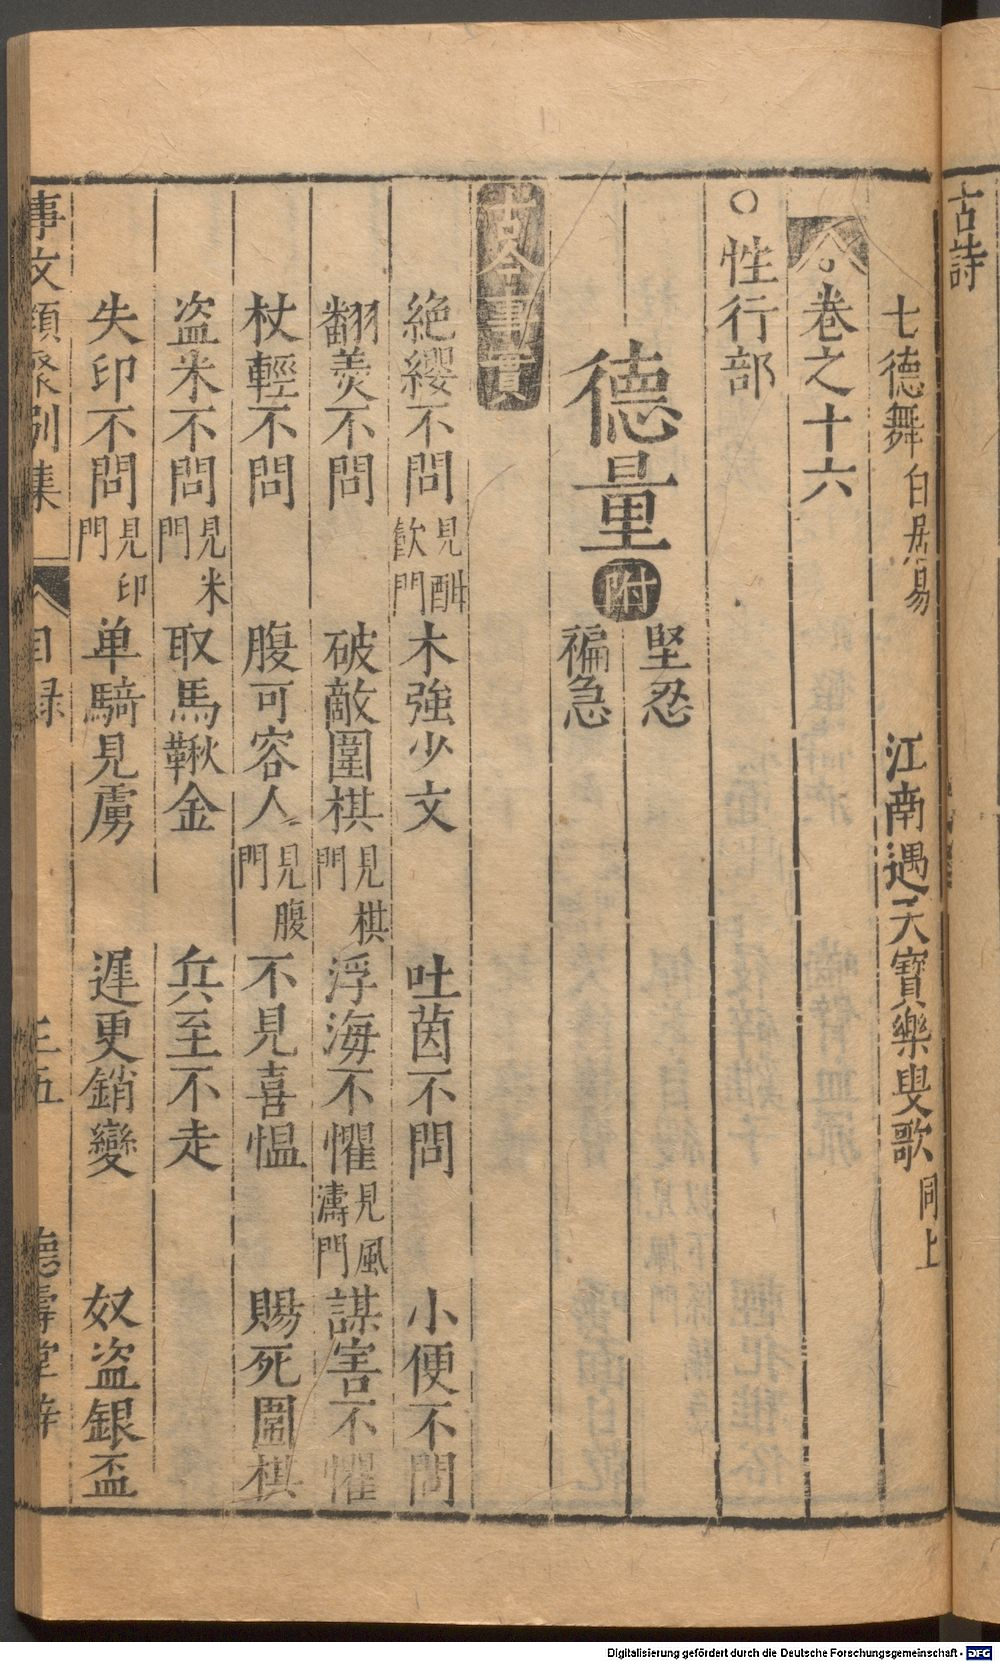 古詩
七德舞 白居易 江南遇天寶樂叟歌 同上
卷之十六
○性行部
德量 附 堅忍 褊急
古今事實
絶纓不問 見酣歡門 木強少文 吐茵不問 小便不問
翻羹不問 破敵圍棋 見棋門 浮海不懼 見風濤門 謀害不懼
杖輕不問 腹可容人 見腹門 不見喜愠 賜死圍棋
盗米不問 見米門 取馬鞦金 兵至不走
失印不問 見印門 单騎見虜 遲更銷變 奴盗銀盃
事文類聚別集 目録 三五 德壽堂梓
Digitalisierung gefördert durch die Deutsche Forschungsgemeinschaft - DFG